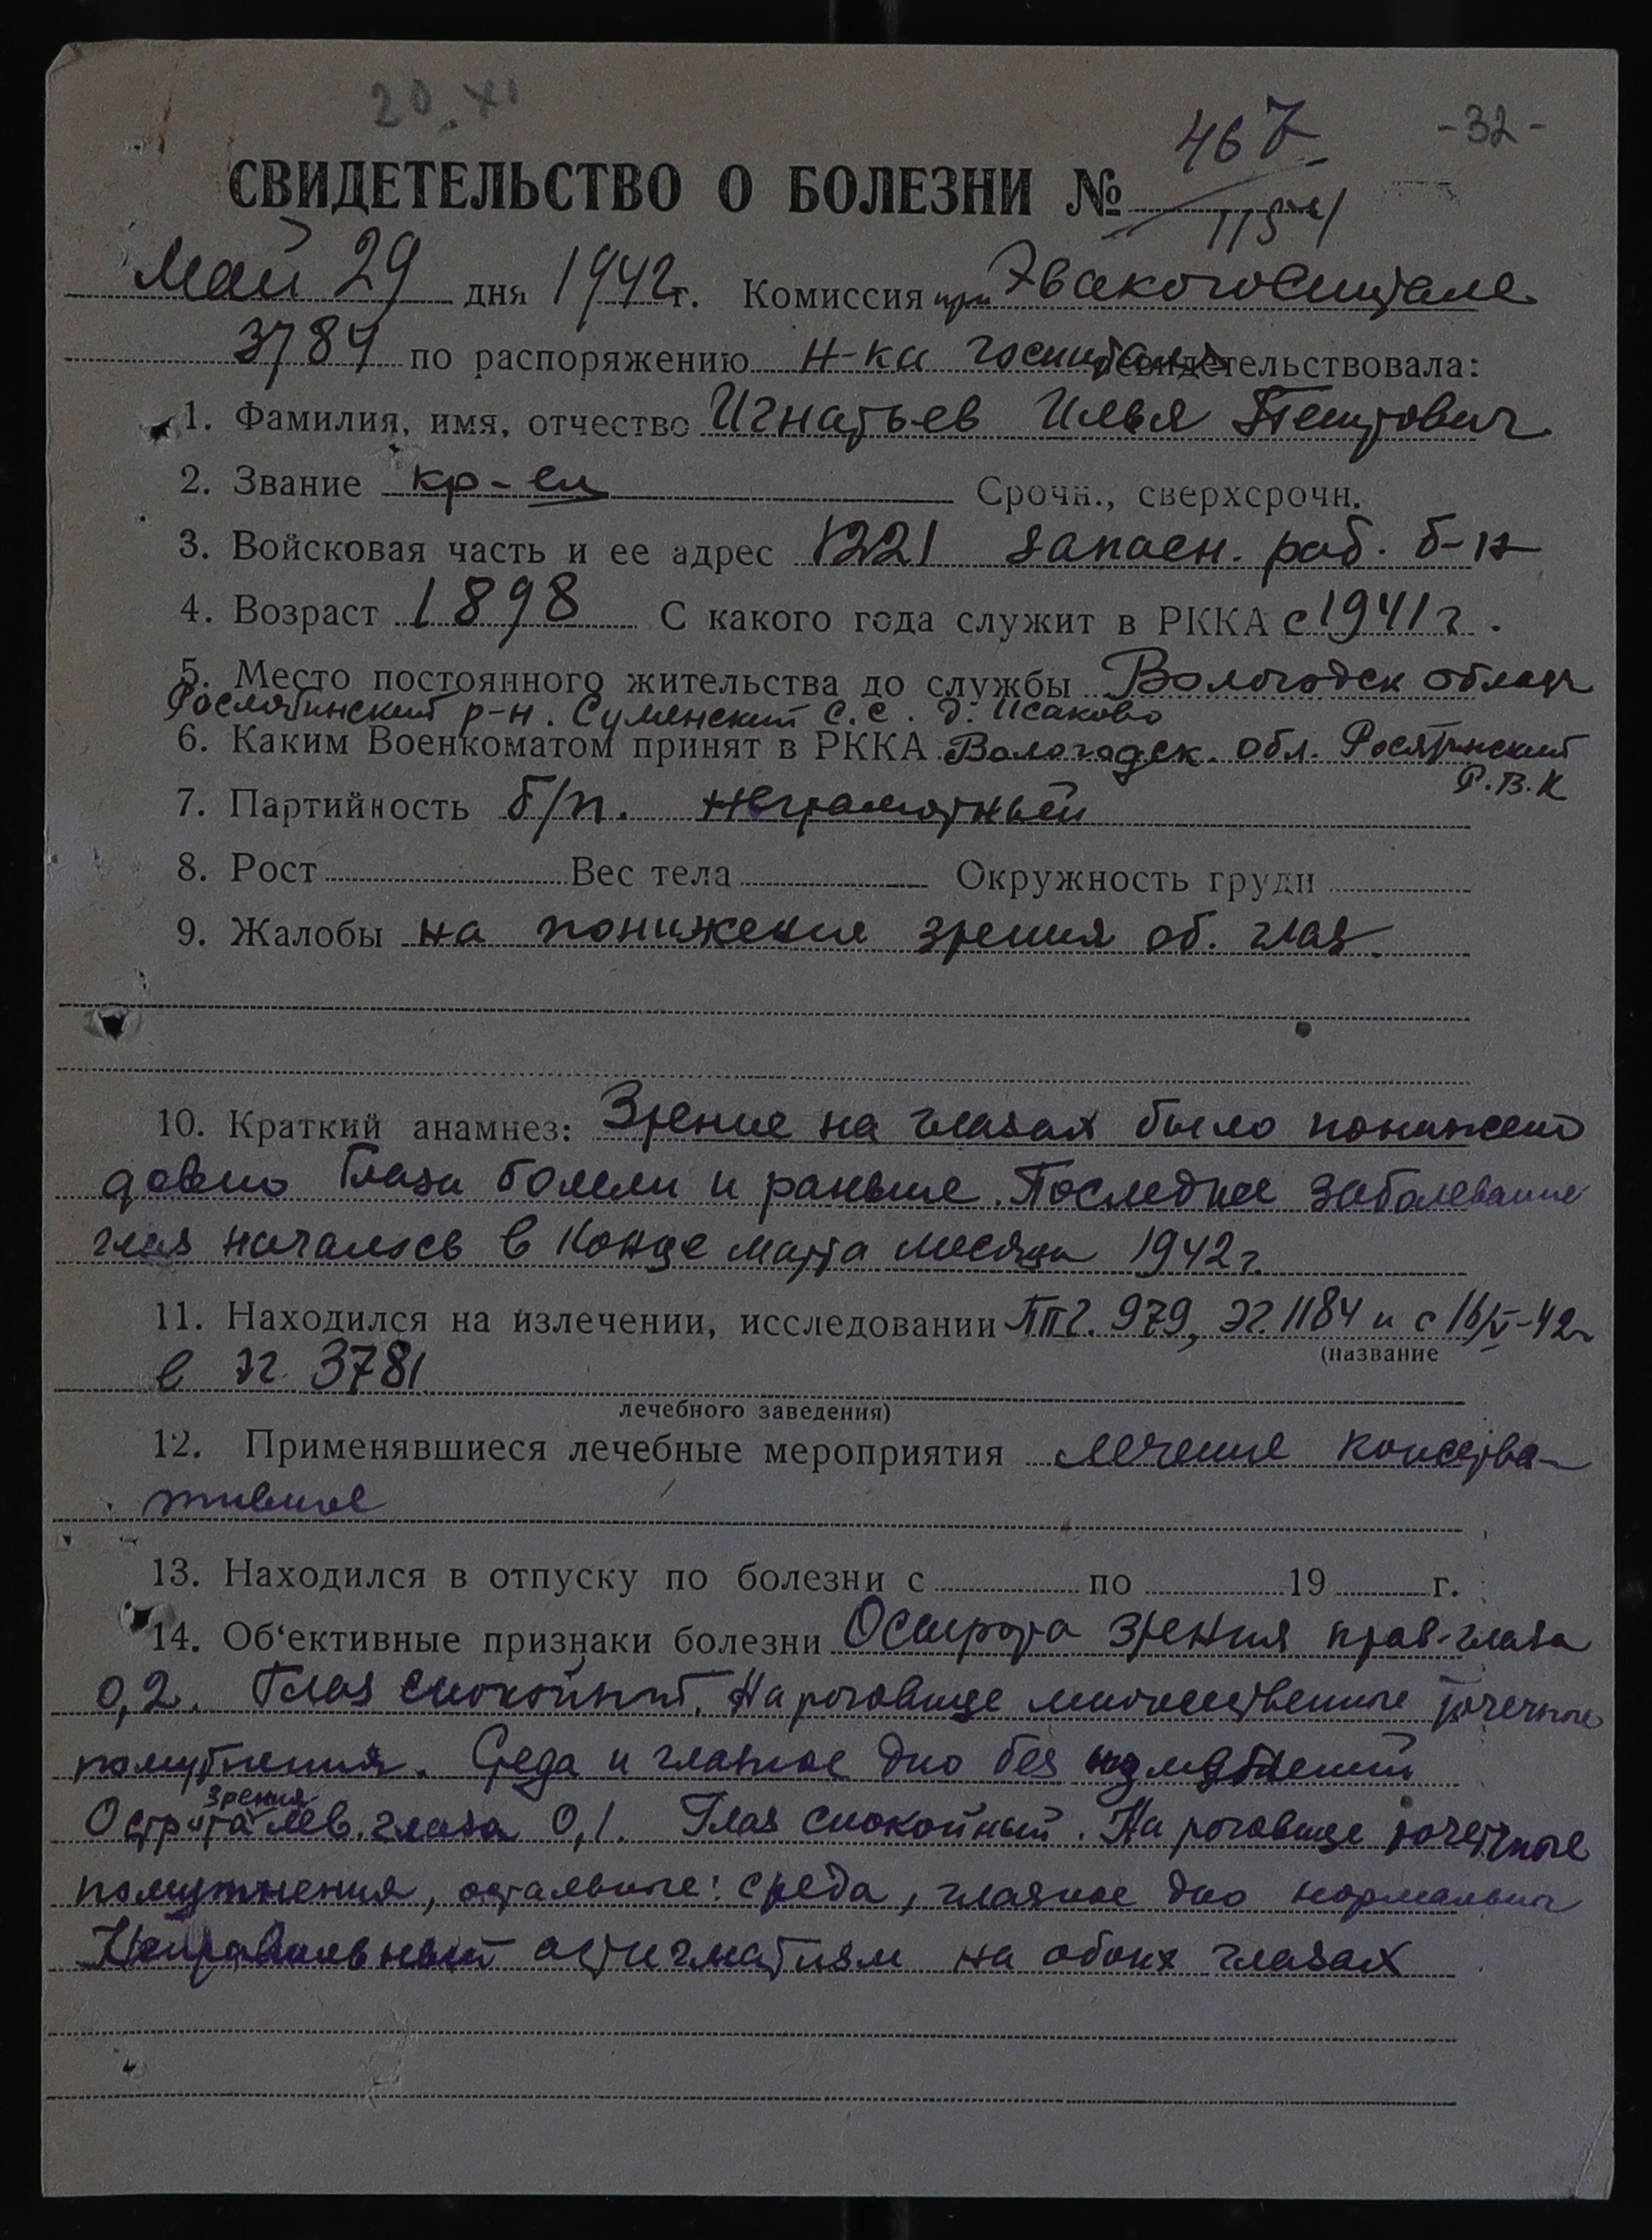 20.XI
467
-32-
СВИДЕТЕЛЬСТВО О БОЛЕЗНИ №
Май 29 дня 1942 г. Комиссия при Эвакогоспитале
по распоряжению н-ка госпиталя свидетельствовала:
1. Фамилия, имя, отчество Игнатьев Илья Петрович
2. Звание кр-ец Срочн., сверхсрочн.
3. Войсковая часть и ее адрес 1221 запасн. раб. б-н
4. Возраст 1898 С какого года служит в РККА с 1941 г.
5. Место постоянного жительства до службы Вологодск область
Рослятинский р-н. Суменский с.с. д. Исаково
6. Каким Военкоматом принят в РККА Вологодск. обл. Рослятинский
Р.В.К
7. Партийность б/п. неграмотный
8. Рост Вес тела Окружность груди
9. Жалобы на понижение зрения об. глаз.
10. Краткий анамнез: Зрение на глазах было понижено
давно Глаза болели и раньше. Последнее заболевание
глаз началось в конце марта месяца 1942 г.
11. Находился на излечении, исследовании ППГ. 979, ЭГ. 1184 и с 16/V-42г
(название
в ЭГ. 3781
лечебного заведения)
12. Применявшиеся лечебные мероприятия лечение консерва-
тивное
13. Находился в отпуску по болезни с по 19 г.
14. Об‘ективные признаки болезни Острота зрения прав. глаза
0,2. Глаз спокойный. На роговице множественные точечные
помутнения. Среда и глазное дно без изменений
зрения
Острота лев. глаза 0,1. Глаз спокойный. На роговице точечные
помутнения, остальные: среда, глазное дно нормальны
Неправильный астигматизм на обоих глазах